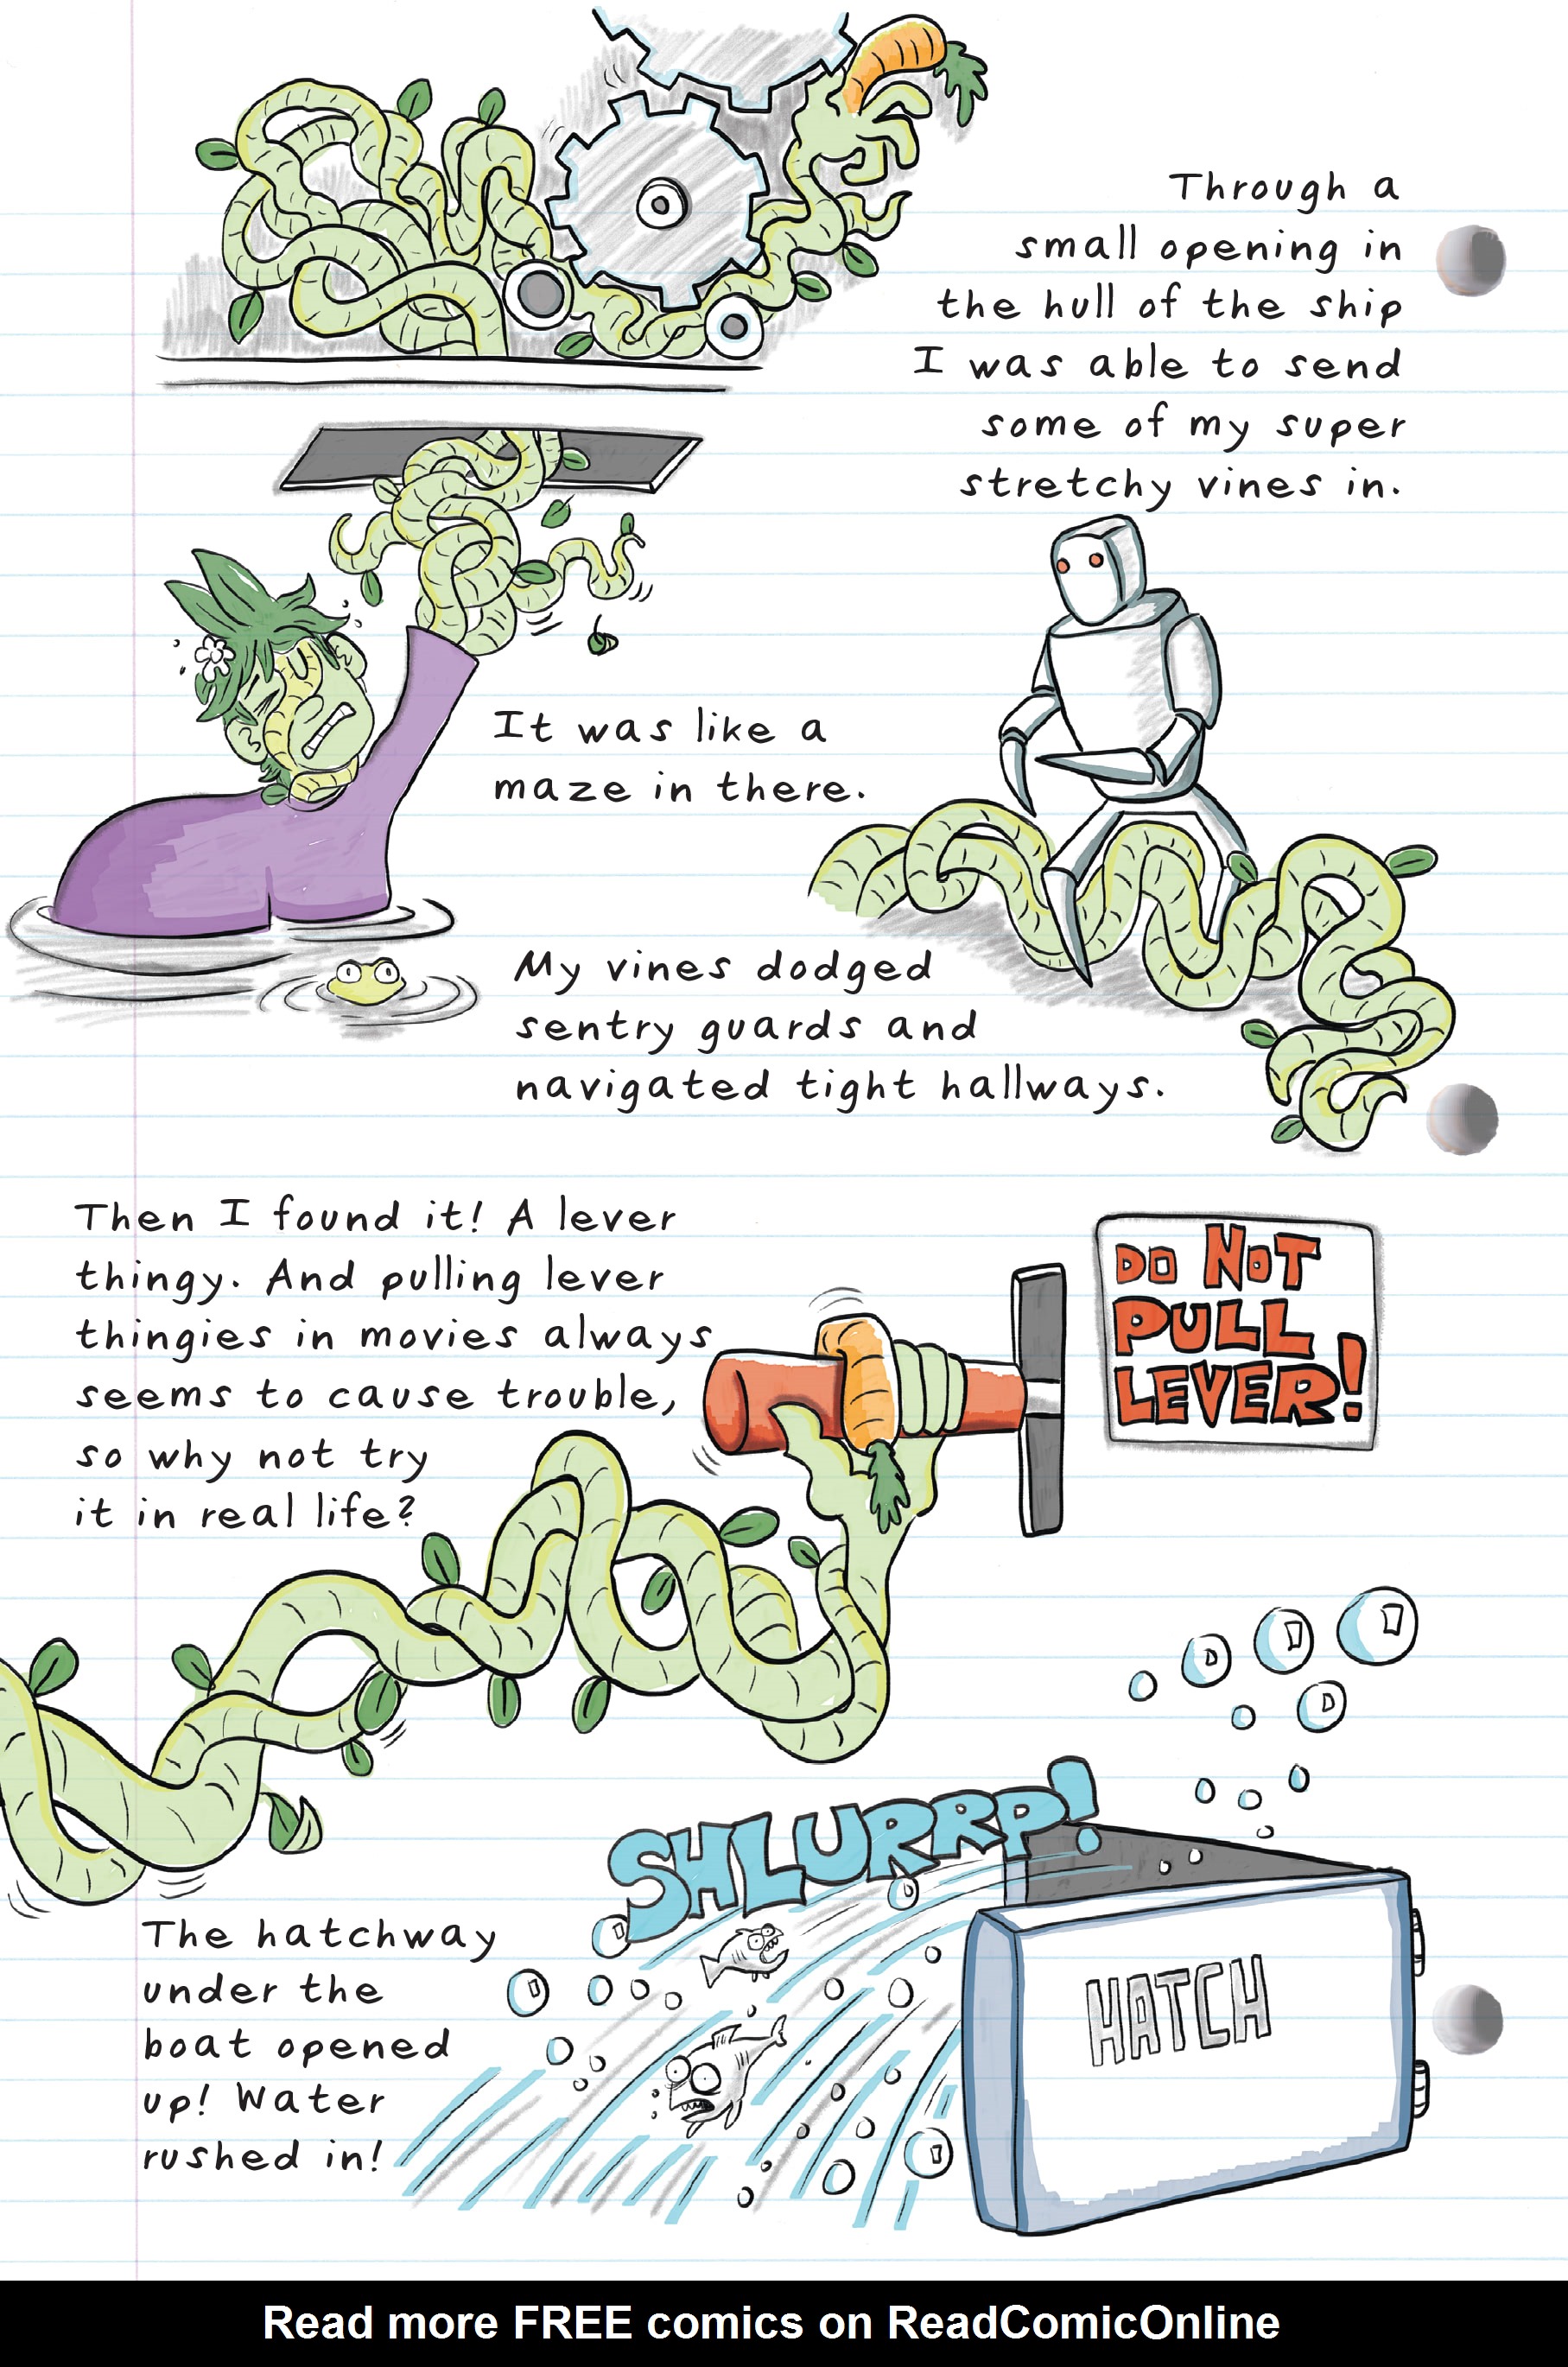 Through a
small opening in
the hull of the ship
I was able to send
some of my super
stretchy vines in.
It was like a
maze in there.
My vines dodged
sentry guards and
navigated tight hallways.
Then I found it! A lever
thingy. And pulling lever
thingies in movies always
seems to cause trouble,
so why not try
it in real life?
DO NOT
PULL
LEVER!
SHLURRP!
HATCH
The hatchway
under the
boat opened
up! Water
rushed in!
Read more FREE comics on ReadComicOnline